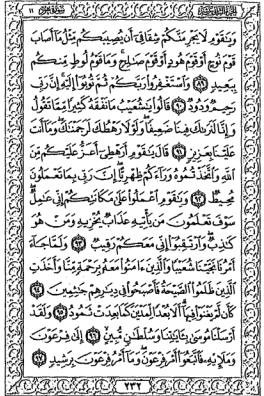 وَيَٰقَوْمِ لَا يَجْرِمَنَّكُمْ شِقَاقِىٓ أَن يُصِيبَكُم مِّثْلُ مَآ أَصَابَ
قَوْمَ نُوحٍ أَوْ قَوْمَ هُودٍ أَوْ قَوْمَ صَٰلِحٍ وَمَا قَوْمُ لُوطٍ مِّنكُم
بِبَعِيدٍ ٨٩ وَٱسْتَغْفِرُوا۟ رَبَّكُمْ ثُمَّ تُوبُوٓا۟ إِلَيْهِ إِنَّ رَبِّى
رَحِيمٌ وَدُودٌ ٩٠ قَالُوا۟ يَٰشُعَيْبُ مَا نَفْقَهُ كَثِيرًا مِّمَّا تَقُولُ
وَإِنَّا لَنَرَىٰكَ فِينَا ضَعِيفًا وَلَوْلَا رَهْطُكَ لَرَجَمْنَٰكَ وَمَآ أَنتَ
عَلَيْنَا بِعَزِيزٍ ٩١ قَالَ يَٰقَوْمِ أَرَهْطِىٓ أَعَزُّ عَلَيْكُم مِّنَ
ٱللَّهِ وَٱتَّخَذْتُمُوهُ وَرَآءَكُمْ ظِهْرِيًّا إِنَّ رَبِّى بِمَا تَعْمَلُونَ
مُحِيطٌ ٩٢ وَيَٰقَوْمِ ٱعْمَلُوا۟ عَلَىٰ مَكَانَتِكُمْ إِنِّى عَٰمِلٌ
سَوْفَ تَعْلَمُونَ مَن يَأْتِيهِ عَذَابٌ يُخْزِيهِ وَمَنْ هُوَ
كَٰذِبٌ وَٱرْتَقِبُوٓا۟ إِنِّى مَعَكُمْ رَقِيبٌ ٩٣ وَلَمَّا جَآءَ
أَمْرُنَا نَجَّيْنَا شُعَيْبًا وَٱلَّذِينَ ءَامَنُوا۟ مَعَهُۥ بِرَحْمَةٍ مِّنَّا وَأَخَذَتِ
ٱلَّذِينَ ظَلَمُوا۟ ٱلصَّيْحَةُ فَأَصْبَحُوا۟ فِى دِيَٰرِهِمْ جَٰثِمِينَ ٩٤
كَأَن لَّمْ يَغْنَوْا۟ فِيهَآ أَلَا بُعْدًا لِّمَدْيَنَ كَمَا بَعِدَتْ ثَمُودُ ٩٥ وَلَقَدْ
أَرْسَلْنَا مُوسَىٰ بِـَٔايَٰتِنَا وَسُلْطَٰنٍ مُّبِينٍ ٩٦ إِلَىٰ فِرْعَوْنَ
وَمَلَإِي۟هِۦ فَٱتَّبَعُوٓا۟ أَمْرَ فِرْعَوْنَ وَمَآ أَمْرُ فِرْعَوْنَ بِرَشِيدٍ ٩٧
٢٣٢